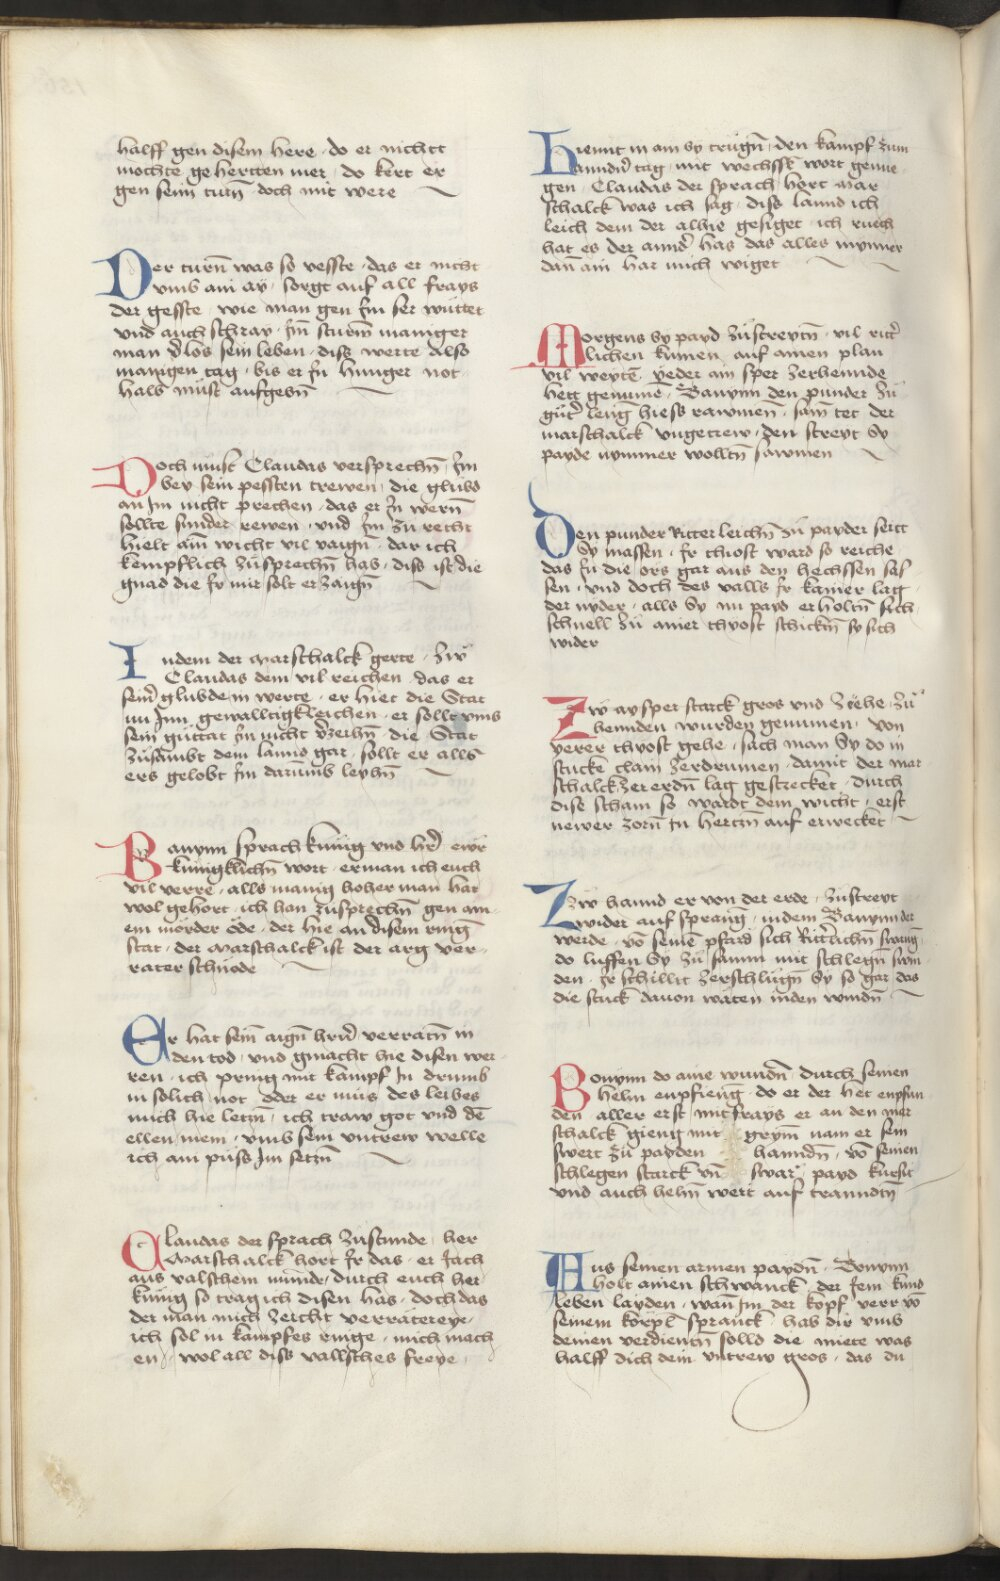 halff gen disem here · do er nichtt
mochte gehertten mer · do kert er
gen seim turn̄ doch mit were
Der turn̄ was so vesste · das er nicht
vmb ain ay · sorgt auf all frays
der gesste · wie man gen Im ser wuttet
vnd auch schray · Im̄ sturm̄ maniger
man v̉los sein leben · diss werte also
manigen tag · bis er In hunger not
hals must aufgebn̄
Doch must Claudas versprechn̄ · Im
bey sein pessten trewen · die glubd
an Im nicht prechen · das er In wern̄
sollte sunder rewen · vnd Im zu recht
hielt ain̄ wicht vil vaign̄ · dar ich
kempflich zusprechn̄ has · diss ist die
gnad die Ir mir solt erzaign̄
Indem der Marschalck gerte · zw̄
Claudas dem vil reichen · das er
sein̉ glubdem werte · er hiet die Stat
nu Im̄ gewalltigkleichen · er sollt vmb
sein guttat In nicht v̉zeihn̄ · die Stat
zusambt dem lannd gar · sollt er alls
ers gelobt Im darumb leyhn̄
Banynn sprach kunig vnd hr̉ ewr
kunigklichn̄ wort · erman ich euch
vil verre · alls manig hoher man hat
wol gehort · ich han zusprechn̄ gen ain-
em morder öde · der hie an disem ring
stat · der Marschalck ist der arg ver-
rater schnode
Er hat sein̄ aign̄ hrn̉ verratn̄ in
den tod · vnd gmacht hie disen wer-
ren · ich pring mit kampf In drumb
in solich not · oder er mus des leibes
mich hie letzn̄ · ich traw got vnd dē
ellen mein · vmb sein vntrew welle
ich ain puss Im setzn̄
Claudas der sprach zustunde · her
Marschalck hort Ir das · er Jach
aus valschem munde · durch euch her
kunig so trag ich disen has · doch das
der man mich zeicht verraterey ·
ich sol in kampfes ringe · mich mach
en · wol all diss vallsches freye
Hiemit in ain sy trugn̄ · den kampf zum
anndn̉ tag · mit wechssl wort genue
gen · Claudas der sprach hort Mar
schalck was ich sag · diss lannd ich
leich dem der alhie gesiget · ich ruech
hat es der annd̉ has das alles mynner
dan̄ ain har mich wiget
Morgens sy payd zustreytn̄ · vil ritt̉
lichen kumen auf ainen plan
vil weytē · yeder ain sper zerhennde
hett genumē · Banynn den punder zu
gut̉ leng hiess rawmen · sam̄ tet der
marschalck vngetrew · den streyt sy
payde nymmer wolltn̄ sawmen
Den punder Ritterleichn̄ zu payder seitt
sy massen · Ir thiost ward so reiche
das In die ors gar aus den hechssen sas-
sen · vnd doch des valls Ir kainer lag
der nyder · alls sy nu payd erholtn̄ sich
schnell zu ainer thyost schickn̄ sy sich
wider
Zway sper starck gros vnd zehe · zu
hennden wurden genumen · von
yerer thyost gehe · sach man sy do in
stucke clain zerdrumen · damit der mar
schalck zererdn̄ lag gestrecket · durch
dise scham so wardt dem wicht · erst
newer zorn̄ In hertzn̄ auf erwecket
Zw hannd er von der erde · zustreyt
wider auf spranḡ · indem Banynn der
werde · vō seinē pfärd sich Ritt̉lichn̄ swanḡ
do luffen sy zu samm mit schlegn̄ swin
den · Ir schillt zerschlugn̄ sy so gar das
die stuck dauon waten inden windn̄
Bonynn do aine wundn̄ · durch seinen
helm enpfienḡ · do er der het enpfun
den aller erst · mit frays er an den mar
schalck gieng mit grym̄ nam er sein
swert zu payden hanndn̄ · vō seinen
schlegen starck vn̄ swar · payd kursit
vnd auch helm̄ wert auf tranndtn̄
Aus seinen armen paydn̄ · Bonynn
holt ainen schwanck · der Jem kund
leben layden · wan̄ Im der kopf verr vō
seinem korpl̄ spranck · hab dir vmb
deinen verdientn̄ solld die miete was
halff dich dein vntrew gros · das du